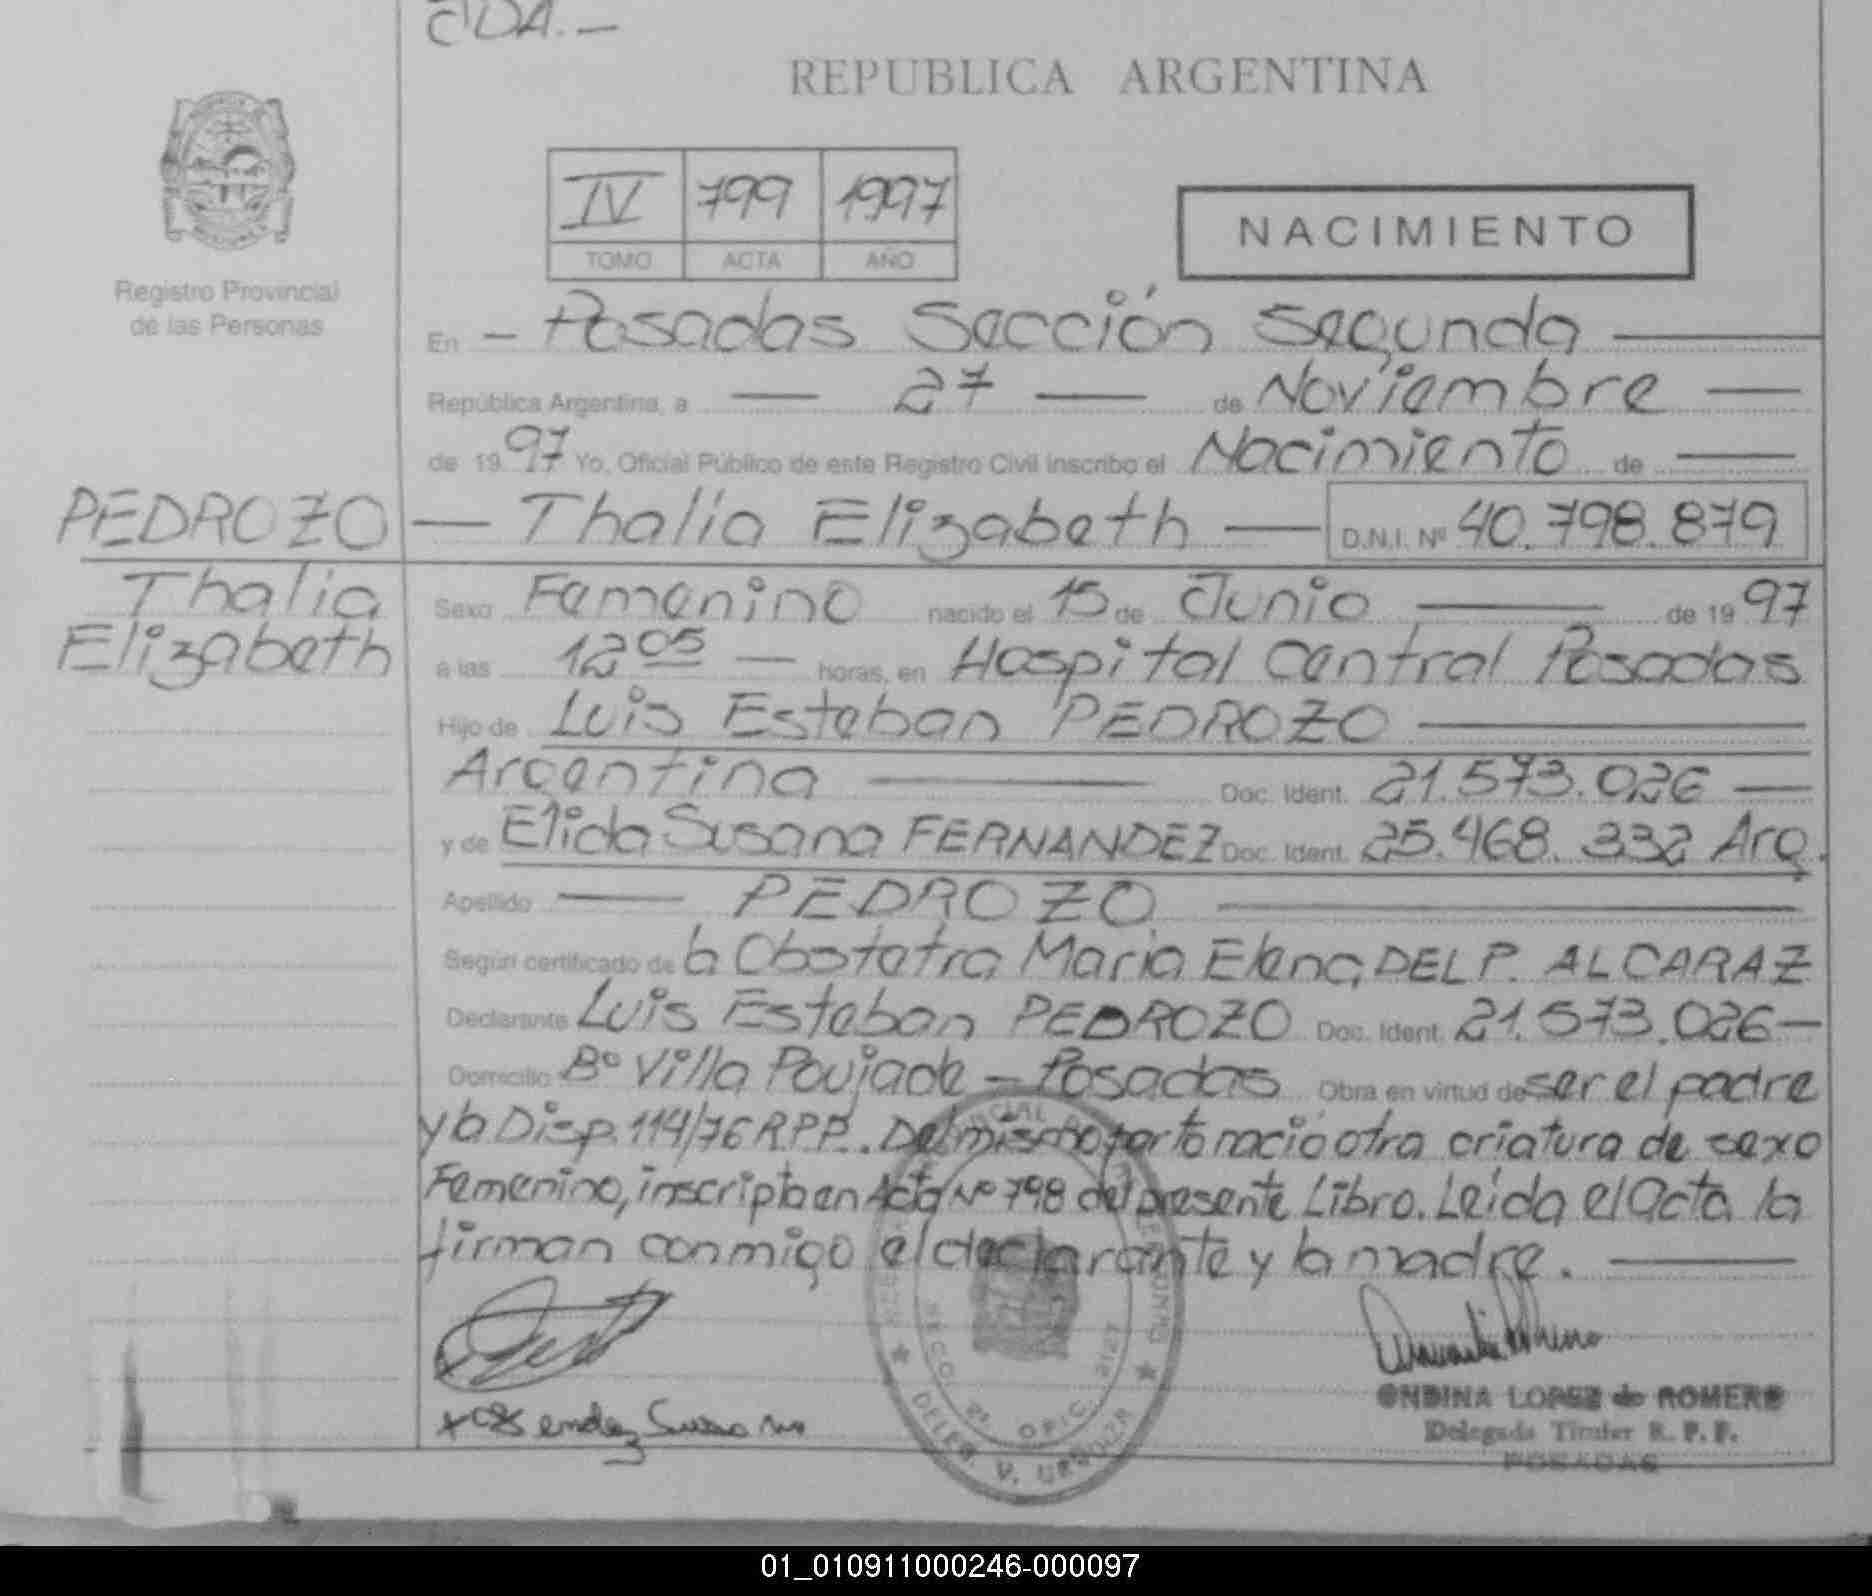 CDA.—
REPUBLICA ARGENTINA
IV 799 1997
TOMO ACTA AÑO
NACIMIENTO
Registro Provincial
de las Personas
En — Posadas Sección Segunda —
República Argentina, a — 27 — de Noviembre —
de 1997 Yo, Oficial Público de este Registro Civil inscribo el Nacimiento de —
PEDROZO — Thalia Elizabeth — D.N.I. Nº 40.798.879
Thalia
Elizabeth
Sexo Femenino nacido el 15 de Junio — de 1997
a las 12 05 — horas, en Hospital Central Posadas
Hijo de Luis Esteban PEDROZO —
Argentina — Doc. Ident. 21.573.026 —
y de Elida Susana FERNANDEZ Doc. Ident. 25.468.332 Arg.
Apellido — PEDROZO —
Según certificado de la Obstetra Maria Elena DEL P. ALCARAZ
Declarante Luis Esteban PEDROZO Doc. Ident. 21.573.026 —
Domicilio Bº Villa Poujade — Posadas Obra en virtud de ser el padre
y la Disp. 114/76 R.P.P.. Del mismo parto nació otra criatura de sexo
Femenino, inscripta en Acta Nº 798 del presente Libro. Leída el acta la
firman conmigo el declarante y la madre. —
ONDINA LOPEZ de ROMERO
Delegada Titular R. P. P.
POSADAS
01_010911000246-000097